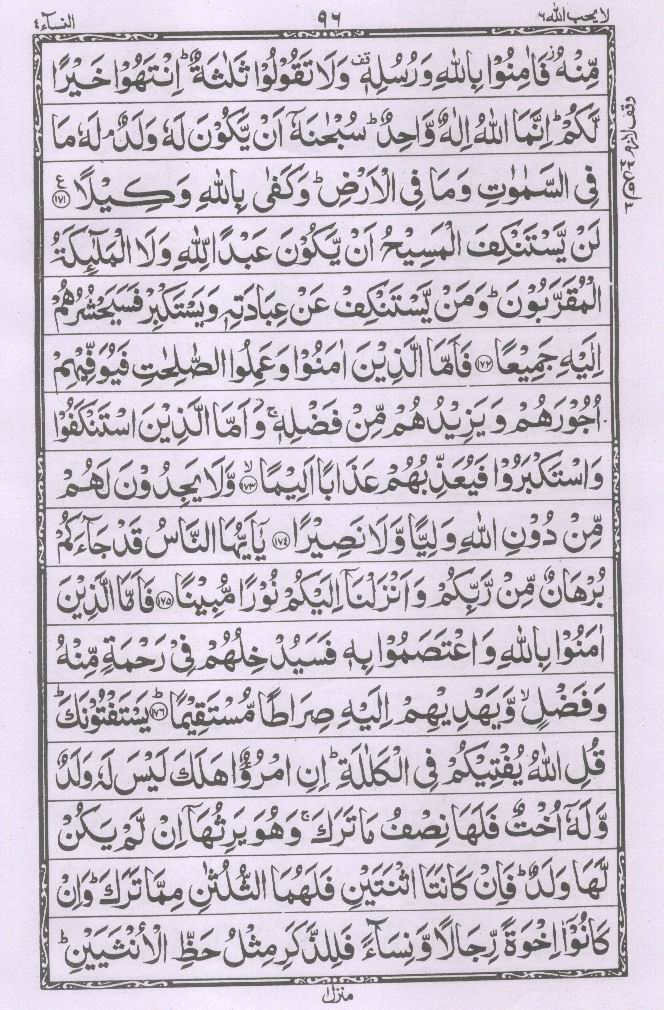 لا يحب الله ٦ ٩٦ النسآء ٤
مِّنْهُ ۫ فَاٰمِنُوْا بِاللّٰهِ وَرُسُلِهٖ ۚ۫ وَلَا تَقُوْلُوْا ثَلٰثَةٌ ؕ اِنْتَهُوْا خَيْرًا
لَّكُمْ ؕ اِنَّمَا اللّٰهُ اِلٰهٌ وَّاحِدٌ ؕ سُبْحٰنَهٗۤ اَنْ يَّكُوْنَ لَهٗ وَلَدٌ ۘ لَهٗ مَا
فِى السَّمٰوٰتِ وَمَا فِى الْاَرْضِ ؕ وَكَفٰى بِاللّٰهِ وَكِيْلًا ﴿۱۷۱﴾ ع
لَنْ يَّسْتَنْكِفَ الْمَسِيْحُ اَنْ يَّكُوْنَ عَبْدًا لِّلّٰهِ وَلَا الْمَلٰٓئِكَةُ
الْمُقَرَّبُوْنَ ؕ وَمَنْ يَّسْتَنْكِفْ عَنْ عِبَادَتِهٖ وَيَسْتَكْبِرْ فَسَيَحْشُرُهُمْ
اِلَيْهِ جَمِيْعًا ﴿۱۷۲﴾ فَاَمَّا الَّذِيْنَ اٰمَنُوْا وَعَمِلُوا الصّٰلِحٰتِ فَيُوَفِّيْهِمْ
اُجُوْرَهُمْ وَيَزِيْدُهُمْ مِّنْ فَضْلِهٖ ۚ وَاَمَّا الَّذِيْنَ اسْتَنْكَفُوْا
وَاسْتَكْبَرُوْا فَيُعَذِّبُهُمْ عَذَابًا اَلِيْمًا ﴿۱۷۳﴾ ۙ وَّلَا يَجِدُوْنَ لَهُمْ
مِّنْ دُوْنِ اللّٰهِ وَلِيًّا وَّلَا نَصِيْرًا ﴿۱۷۴﴾ يٰۤاَيُّهَا النَّاسُ قَدْ جَآءَكُمْ
بُرْهَانٌ مِّنْ رَّبِّكُمْ وَاَنْزَلْنَاۤ اِلَيْكُمْ نُوْرًا مُّبِيْنًا ﴿۱۷۵﴾ فَاَمَّا الَّذِيْنَ
اٰمَنُوْا بِاللّٰهِ وَاعْتَصَمُوْا بِهٖ فَسَيُدْخِلُهُمْ فِىْ رَحْمَةٍ مِّنْهُ
وَفَضْلٍ ۙ وَّيَهْدِيْهِمْ اِلَيْهِ صِرَاطًا مُّسْتَقِيْمًا ﴿۱۷۶﴾ ؕ يَسْتَفْتُوْنَكَ ؕ
قُلِ اللّٰهُ يُفْتِيْكُمْ فِى الْكَلٰلَةِ ؕ اِنِ امْرُؤٌا هَلَكَ لَيْسَ لَهٗ وَلَدٌ
وَّلَهٗۤ اُخْتٌ فَلَهَا نِصْفُ مَا تَرَكَ ۚ وَهُوَ يَرِثُهَاۤ اِنْ لَّمْ يَكُنْ
لَّهَا وَلَدٌ ؕ فَاِنْ كَانَتَا اثْنَتَيْنِ فَلَهُمَا الثُّلُثٰنِ مِمَّا تَرَكَ ؕ وَاِنْ
كَانُوْۤا اِخْوَةً رِّجَالًا وَّنِسَآءً فَلِلذَّكَرِ مِثْلُ حَظِّ الْاُنْثَيَيْنِ ؕ
منزل ۱